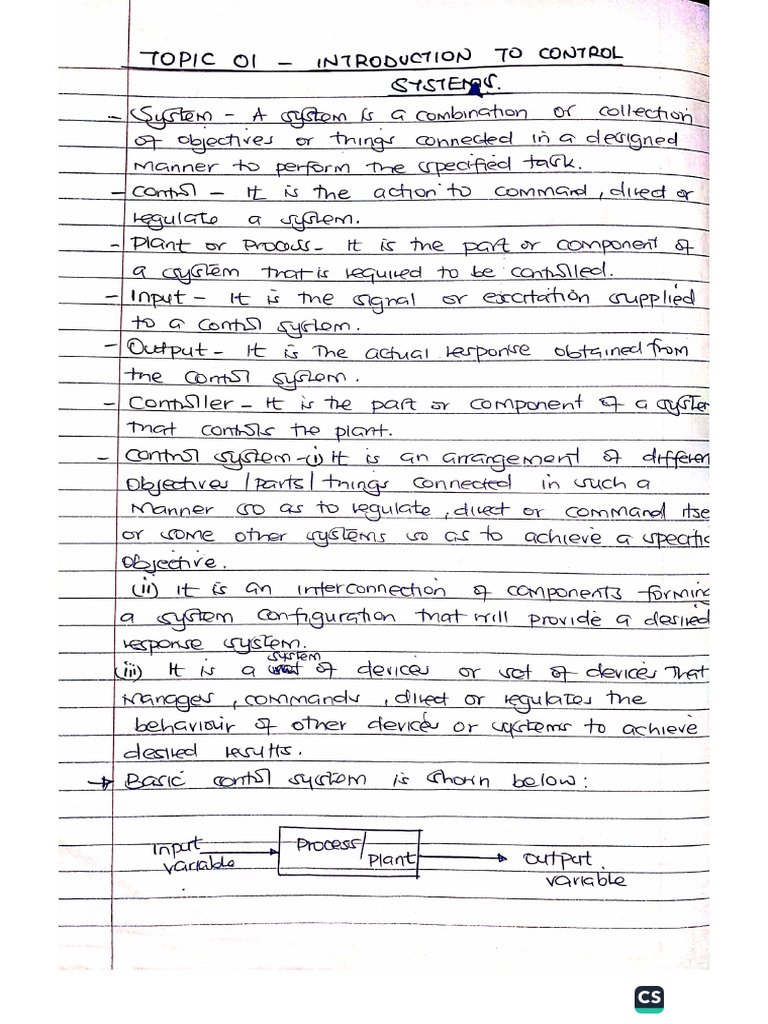 TOPIC 01 - INTRODUCTION TO CONTROL
SYSTEMS.
- System - A system is a combination or collection
of objectives or things connected in a designed
manner to perform the specified task.
- Control - It is the action to command, direct or
regulate a system.
- Plant or Process - It is the part or component of
a system that is required to be controlled.
- Input - It is the signal or excitation supplied
to a control system.
- Output - It is the actual response obtained from
the control system.
- Controller - It is the part or component of a system
that controls the plant.
- Control system - (i) It is an arrangement of differen
objectives / parts / things connected in such a
manner so as to regulate, direct or command itse
or some other systems so as to achieve a specific
objective.
(ii) It is an interconnection of components forming
a system configuration that will provide a desired
response system.
(iii) It is a system of devices or set of devices that
manages, commands, direct or regulates the
behaviour of other devices or systems to achieve
desired results.
→ Basic control system is shown below:
Input
variable
Process/
Plant
Output
variable
CS